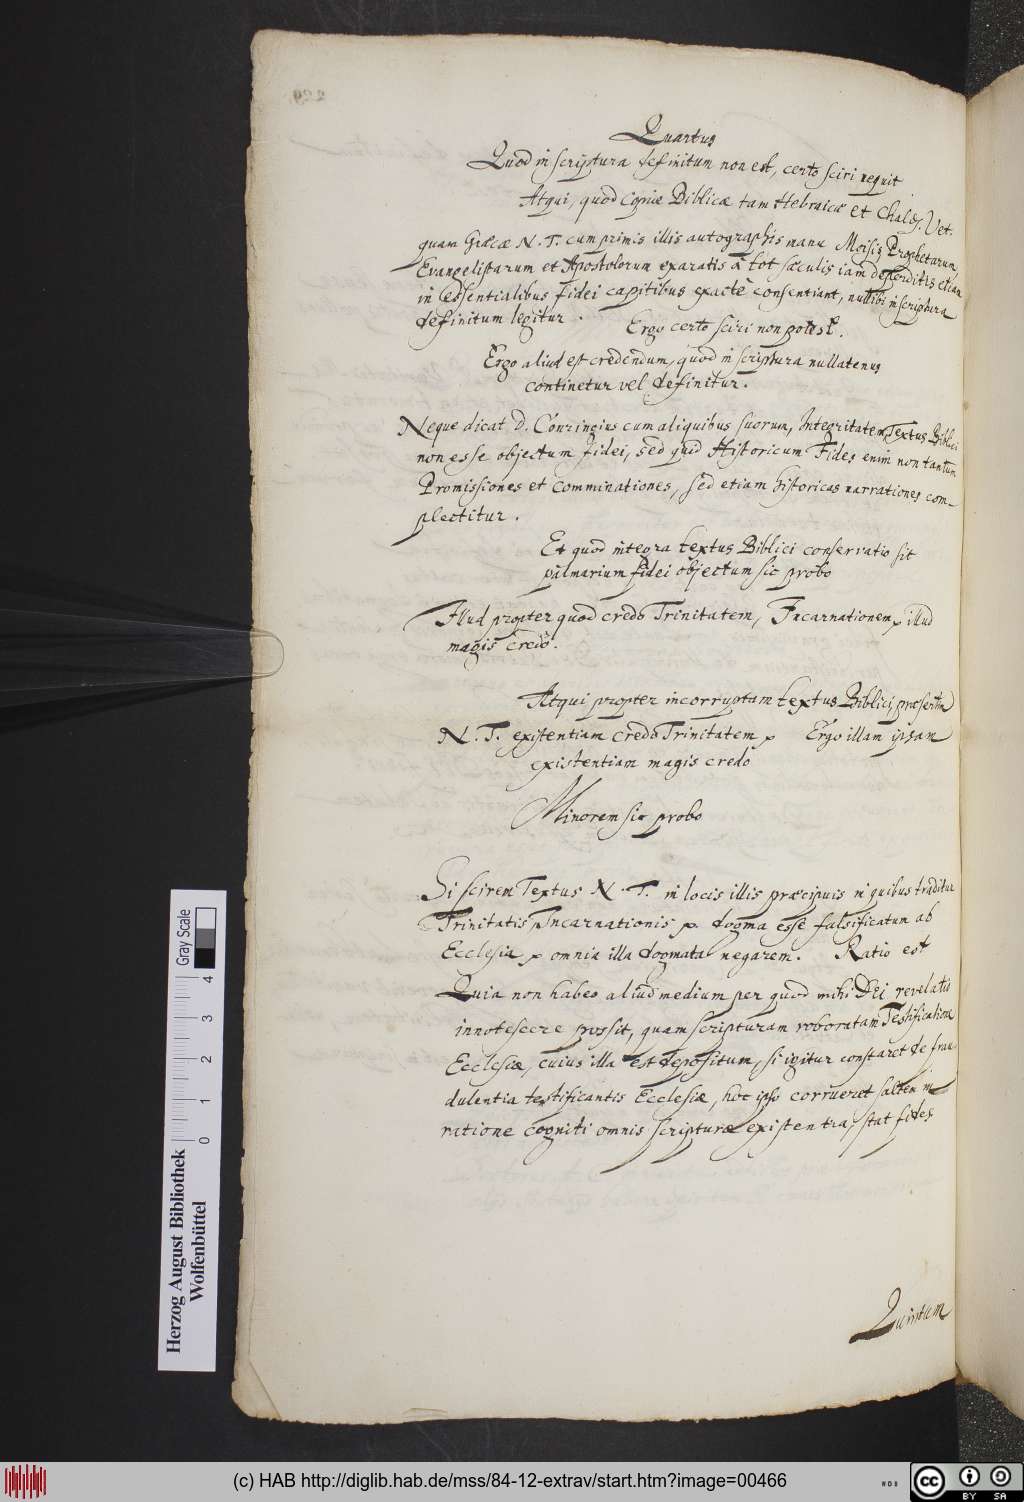 Quartus
Quod in scriptura definitum non est, certo sciri nequit
Atqui, quod copiæ Biblicæ tam Hebraicæ et Chald. Vet.
quam Græcæ N. T. cum primis illis autographis manu Moisis Prophetarum
Evangelistarum et Apostolorum exaratis â tot sæculis iam deperditis etiam
in essentialibus fidei capitibus exactè consentiant, nullibi in scriptura
definitum legitur. Ergo certo sciri non potest.
Ergo aliud est credendum, quod in scriptura nullatenus
continetur vel definitur.
Neque dicat D. Conringius cum aliquibus suorum, Integritatem Textus Biblici
non esse objectum fidei, sed quid Historicum Fides enim non tantum
Promissiones et comminationes, sed etiam historicas narrationes com-
plectitur.
Et quod integra textus Biblici conservatio sit
palmarium fidei objectum sic probo
Illud propter quod credo Trinitatem, Incarnationem p illud
magis credo.
Atqui propter incorruptam textus Biblici, præsertim
N. T. existentiam credo Trinitatem p Ergo illam ipsam
existentiam magis credo
Minorem sic probo
Si scirem Textus N. T. in locis illis præcipuis in quibus traditur
Trinitatis, Incarnationis p. dogma esse falsificatum ab
Ecclesia p omnia illa dogmata negarem. Ratio est
Quia non habeo aliud medium per quod mihi Dei revelatio
innotescere possit, quam scripturam roboratam Testificatione
Ecclesiæ, cuius illa est depositum, si igitur constaret de frau-
dulentia testificantis Ecclesiæ, hoc ipso corrueret saltem in
ratione cogniti omnis scripturæ existentia, stat fides
Quintum
Herzog August Bibliothek
Wolfenbüttel
0 1 2 3 4
Gray Scale
(c) HAB http://diglib.hab.de/mss/84-12-extrav/start.htm?image=00466
WDB
cc BY SA